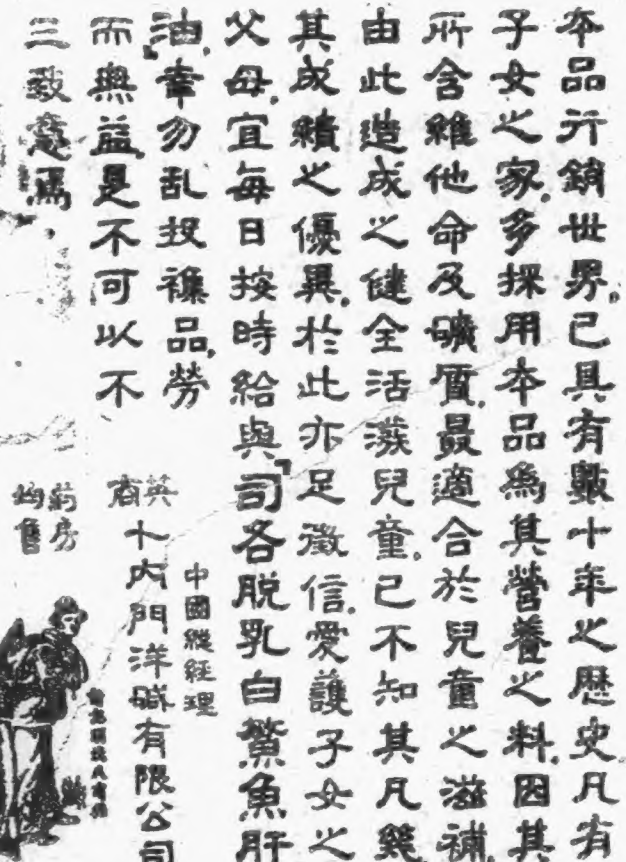 本品行銷世界。已具有數十年之歷史凡有
子女之家。多採用本品爲其營養之料。因其
所含維他命及礦質。最適合於兒童之滋補
由此造成之健全活潑兒童。已不知其凡幾
其成績之優異。於此亦足徵信。愛護子女之
父母。宜每日按時給與「司各脫乳白鰵魚肝
油」。幸勿乱投襍品。勞
而無益。是不可以不
三致意焉。
中國総経理
英商
卜內門洋碱有限公司
药房
均售